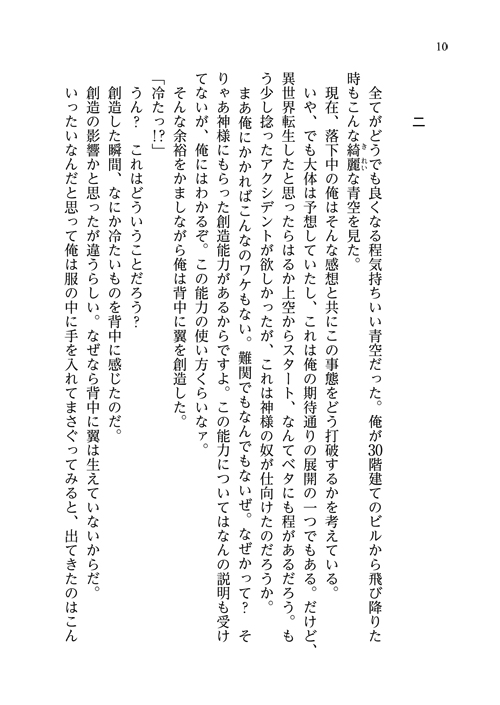 10
二
全てがどうでも良くなる程気持ちいい青空だった。俺が30階建てのビルから飛び降りた
時もこんな綺麗な青空を見た。
現在、落下中の俺はそんな感想と共にこの事態をどう打破するかを考えている。
いや、でも大体は予想していたし、これは俺の期待通りの展開の一つでもある。だけど、
異世界転生したと思ったらはるか上空からスタート、なんてベタにも程があるだろう。も
う少し捻ったアクシデントが欲しかったが、これは神様の奴が仕向けたのだろうか。
まあ俺にかかればこんなのワケもない。難関でもなんでもないぜ。なぜかって？　そ
りゃあ神様にもらった創造能力があるからですよ。この能力についてはなんの説明も受け
てないが、俺にはわかるぞ。この能力の使い方くらいなァ。
そんな余裕をかましながら俺は背中に翼を創造した。
「冷たっ!?」
うん？　これはどういうことだろう？
創造した瞬間、なにか冷たいものを背中に感じたのだ。
創造の影響かと思ったが違うらしい。なぜなら背中に翼は生えていないからだ。
いったいなんだと思って俺は服の中に手を入れてまさぐってみると、出てきたのはこん